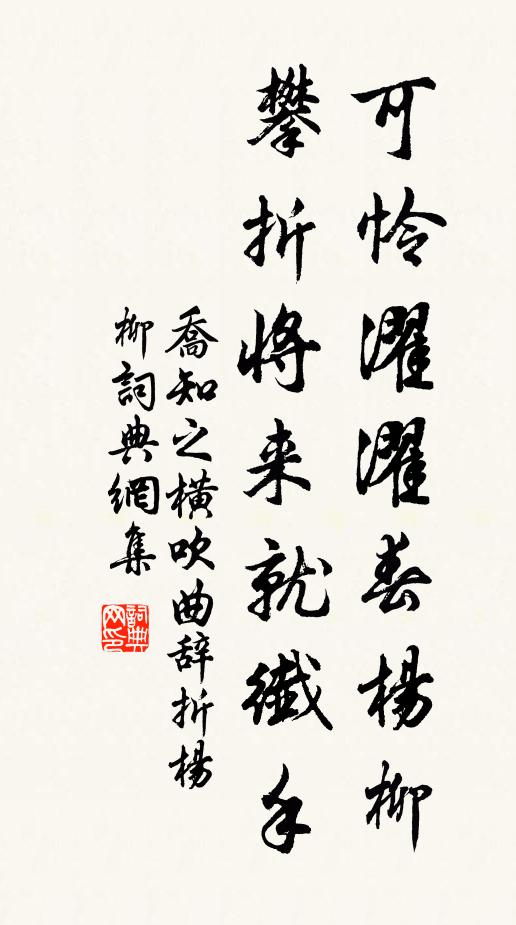 可怜濯濯春楊柳
攀折将来就纖手
喬知之橫吹曲辞折楊
柳詞典網集
詞典网印